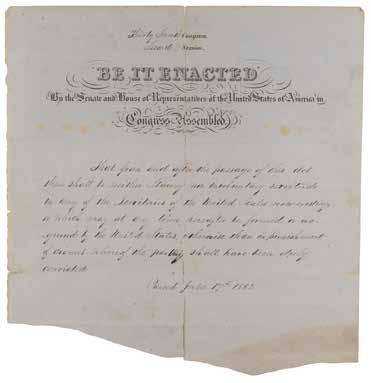 Thirty Seventh Congress
Second Session,
BE, IT ENACTED
By the Senate and House of Representatives of the United States of America in
Congress Assembled
That from and after the passage of this Act
there shall be neither slavery nor involuntary servitude
in any of the Territories of the United States now existing
or which may at any time hereafter be formed or ac-
quired by the United States, otherwise than in punishment
of crimes whereof the party shall have been duly
convicted
Passed June 17th 1862